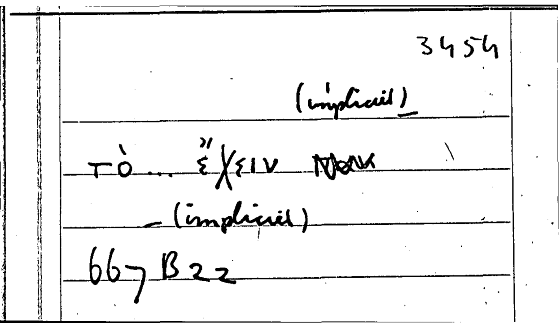 3454
(implicite)
τὸ... ἔχειν
- (implicite)
667 B 22